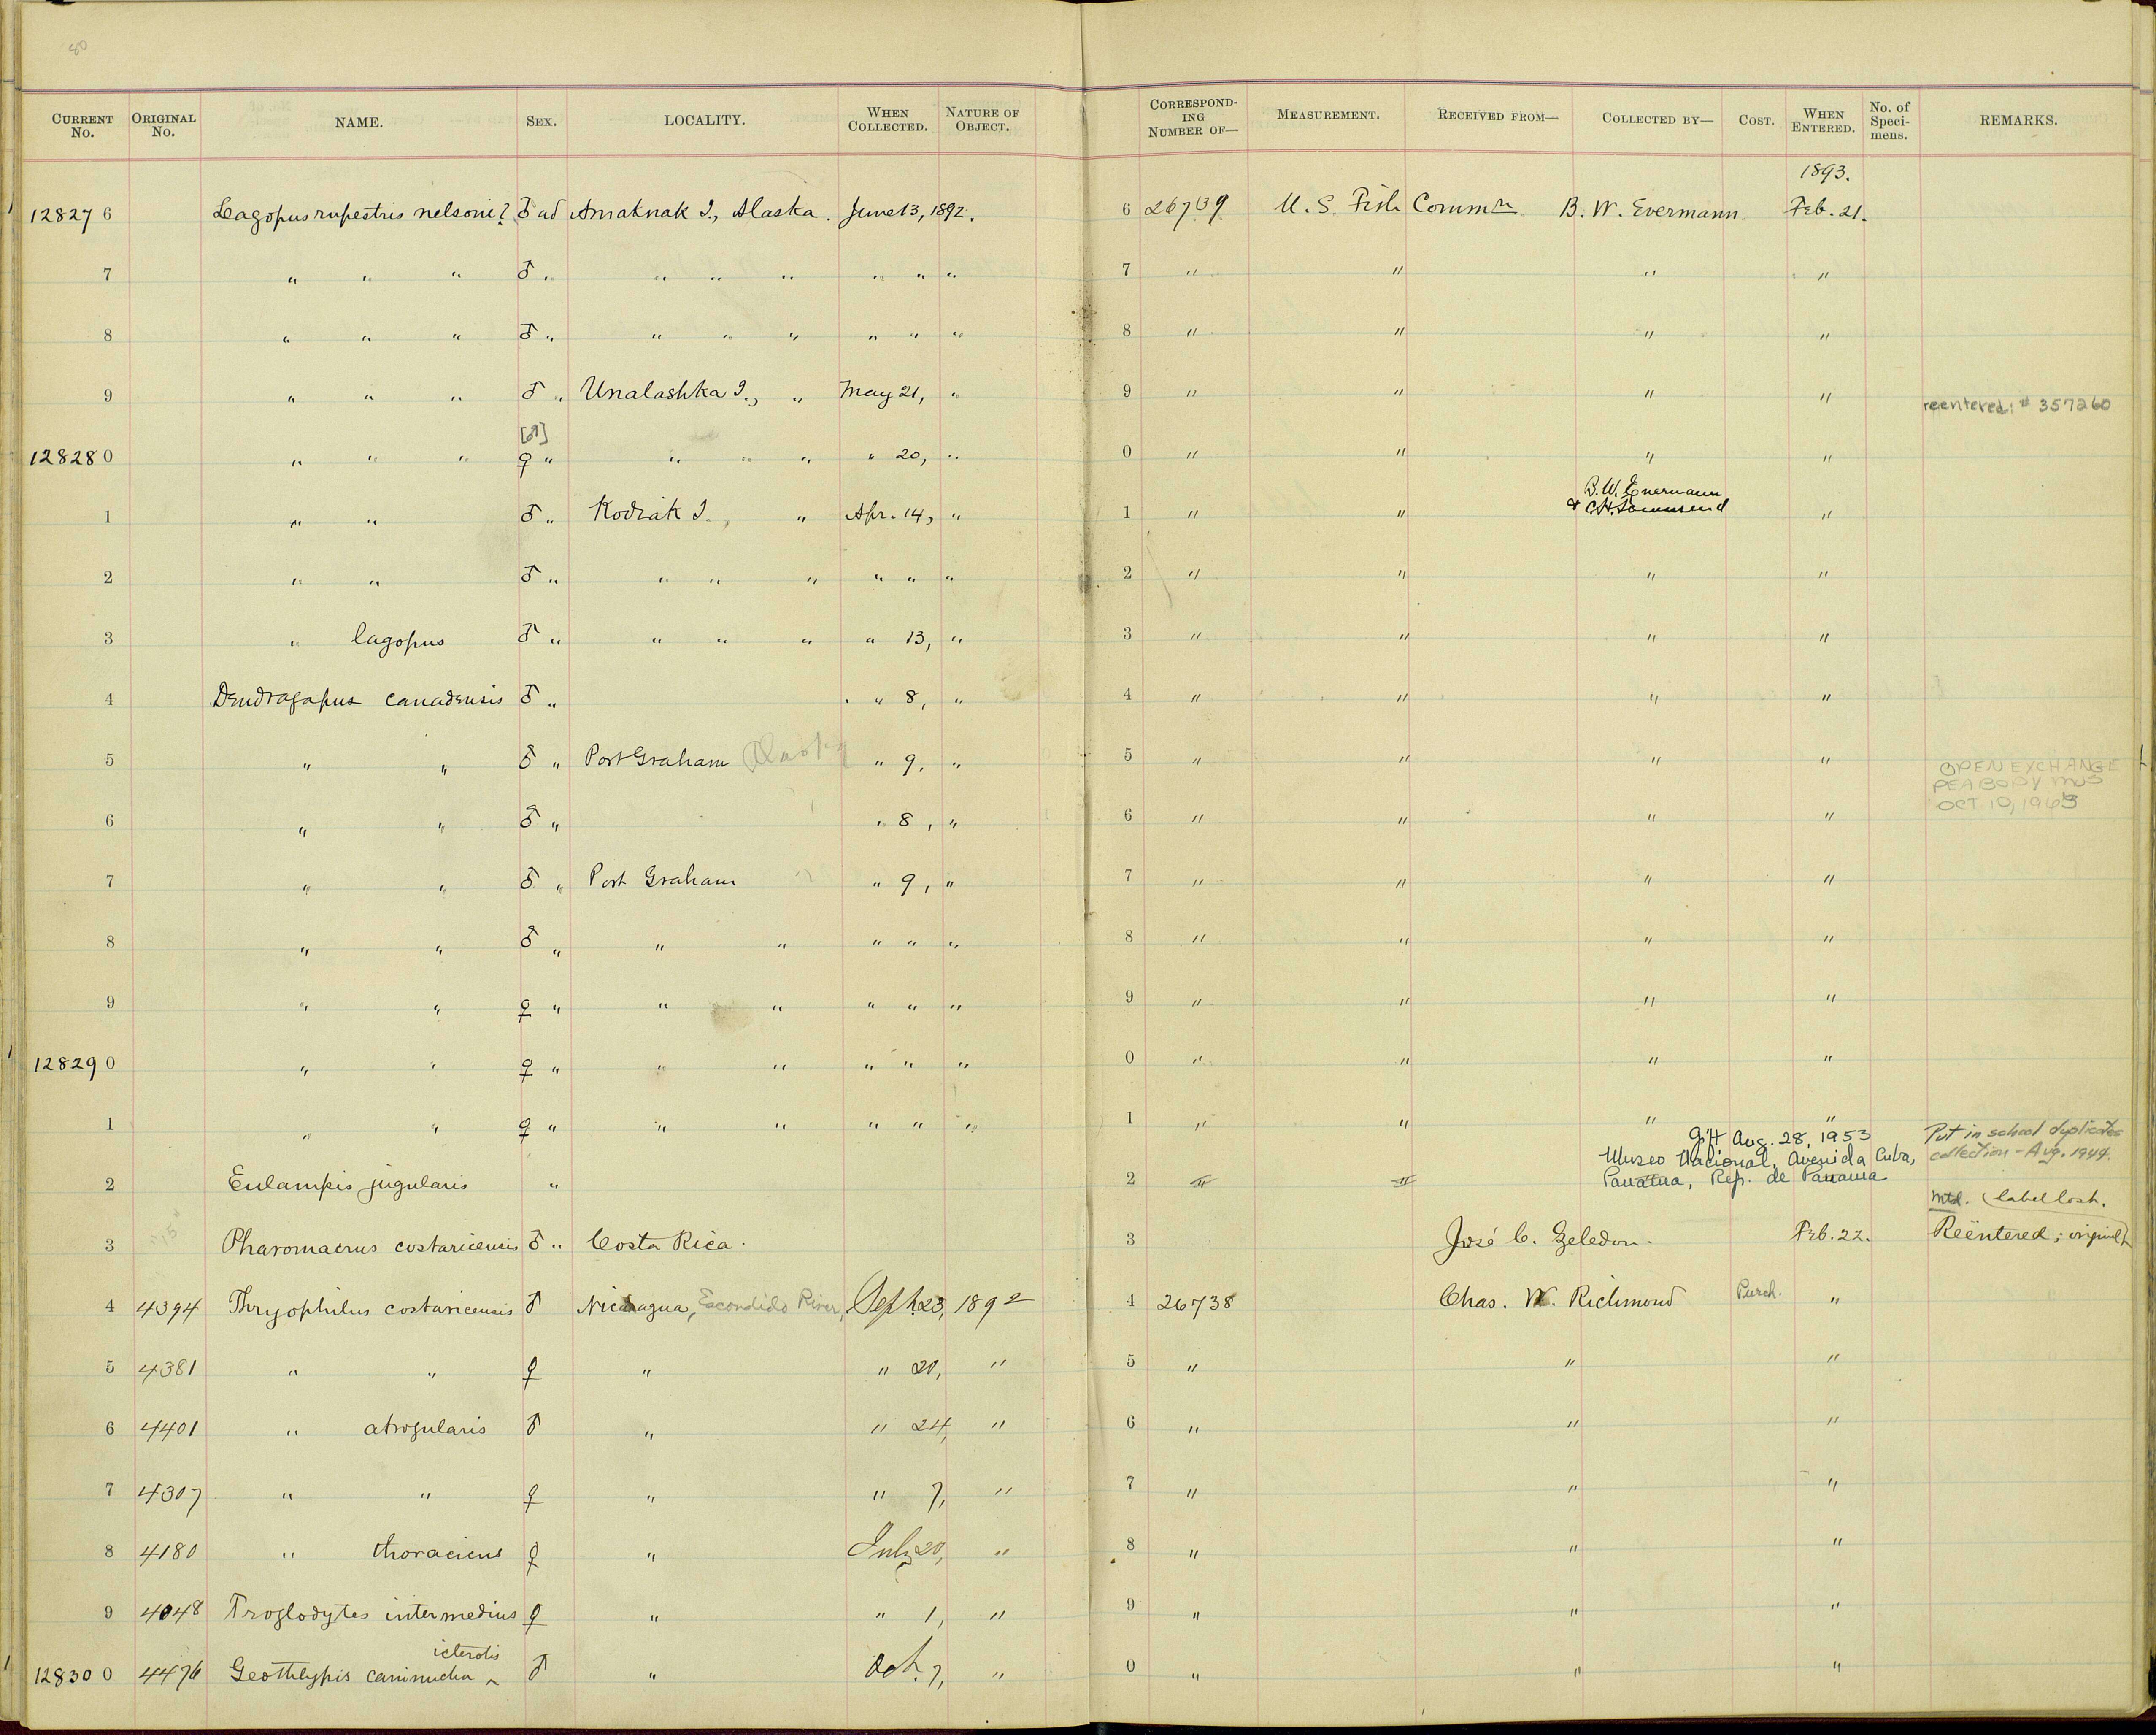 80
CURRENT No. ORIGINAL No. NAME. SEX. LOCALITY. WHEN COLLECTED. NATURE OF OBJECT. CORRESPONDING NUMBER OF— MEASUREMENT. RECEIVED FROM— COLLECTED BY— COST. WHEN ENTERED. No. of Specimens. REMARKS.
1893.
128276 Lagopus rupestris nelsoni? ♂ ad Amaknak I., Alaska. June 13, 1892. 6 26739 U. S. Fish Commn B. W. Evermann Feb. 21.
7 " " " ♂ " " " " " " " 7 " " " "
8 " " " ♂ " " " " " " " 8 " " " "
9 " " " ♂ " Unalashka I., " May 21, " 9 " " " " reentered: # 357260
[♂]
128280 " " " ♀ " " " " " 20, " 0 " " " "
B. W. Evermann
1 " " ♂ " Kodiak I., " Apr. 14, " 1 " " & C.H. Townsend "
2 " " ♂ " " " " " " " 2 " " " "
3 " lagopus ♂ " " " " " 13, " 3 " " " "
4 Dendragapus canadensis ♂ " " 8, " 4 " " " "
5 " " ♂ " Port Graham Alaska " 9, " 5 " " " " OPEN EXCHANGE
PEABODY MUS
OCT 10, 1963
6 " " ♂ " " 8, " 6 " " " "
7 " " ♂ " Port Graham " " 9, " 7 " " " "
8 " " ♂ " " " " " " 8 " " " "
9 " " ♀ " " " " " " 9 " " " "
128290 " " ♀ " " " " " " 0 " " " "
1 " " ♀ " " " " " " 1 " " " "
Gift Aug. 28, 1953 Put in school duplicates
Museo Nacional, Avenida Cuba, collection - Aug. 1944.
2 Eulampis jugularis " 2 " " Panama, Rep. de Panama
mtd. label lost.
3 Pharomacrus costaricensis ♂ " Costa Rica. 3 José C. Zeledon. Feb. 22. Reëntered; original
4 4394 Thryophilus costaricensis ♂ Nicaragua, Escondido River, Sept. 23, 1892 4 26738 Chas. W. Richmond Purch. "
5 4381 " " ♀ " " 20, " 5 " " "
6 4401 " atrogularis ♂ " " 24, " 6 " " "
7 4307 " " ♀ " " 7, " 7 " " "
8 4180 " thoracicus ♀ " July 20, " 8 " " "
9 4048 Troglodytes intermedius ♀ " " 1, " 9 " " "
icterotis
128300 4476 Geothlypis caninucha ^ ♂ " Oct. 7, " 0 " " "